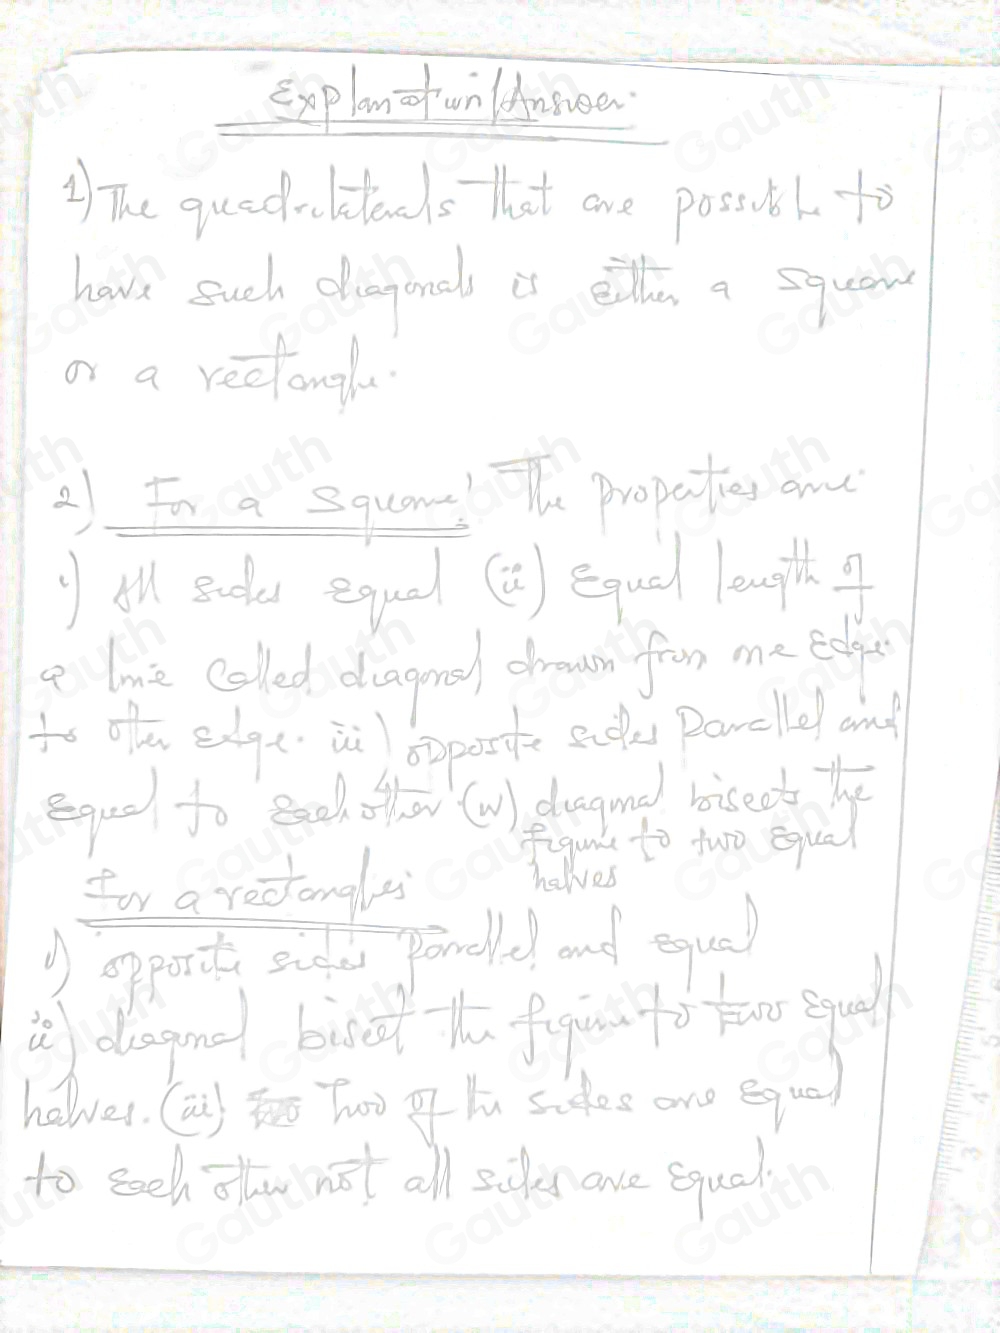 Explanation/Answer.
1) The quadrilaterals that are possible to
have such diagonals is either a square
or a rectangle.
2) For a square: The properties are
i) All sides equal (ii) Equal length of
a line called diagonal drawn from one edge
to other edge. iii) opposite sides parallel and
equal to each other (iv) diagonal bisects the
figure to two equal
halves
For a rectangles
i) opposite sides parallel and equal
ii) diagonal bisect the figure to two equal
halves. (iii) Two of the sides are equal
to each other not all sides are equal.